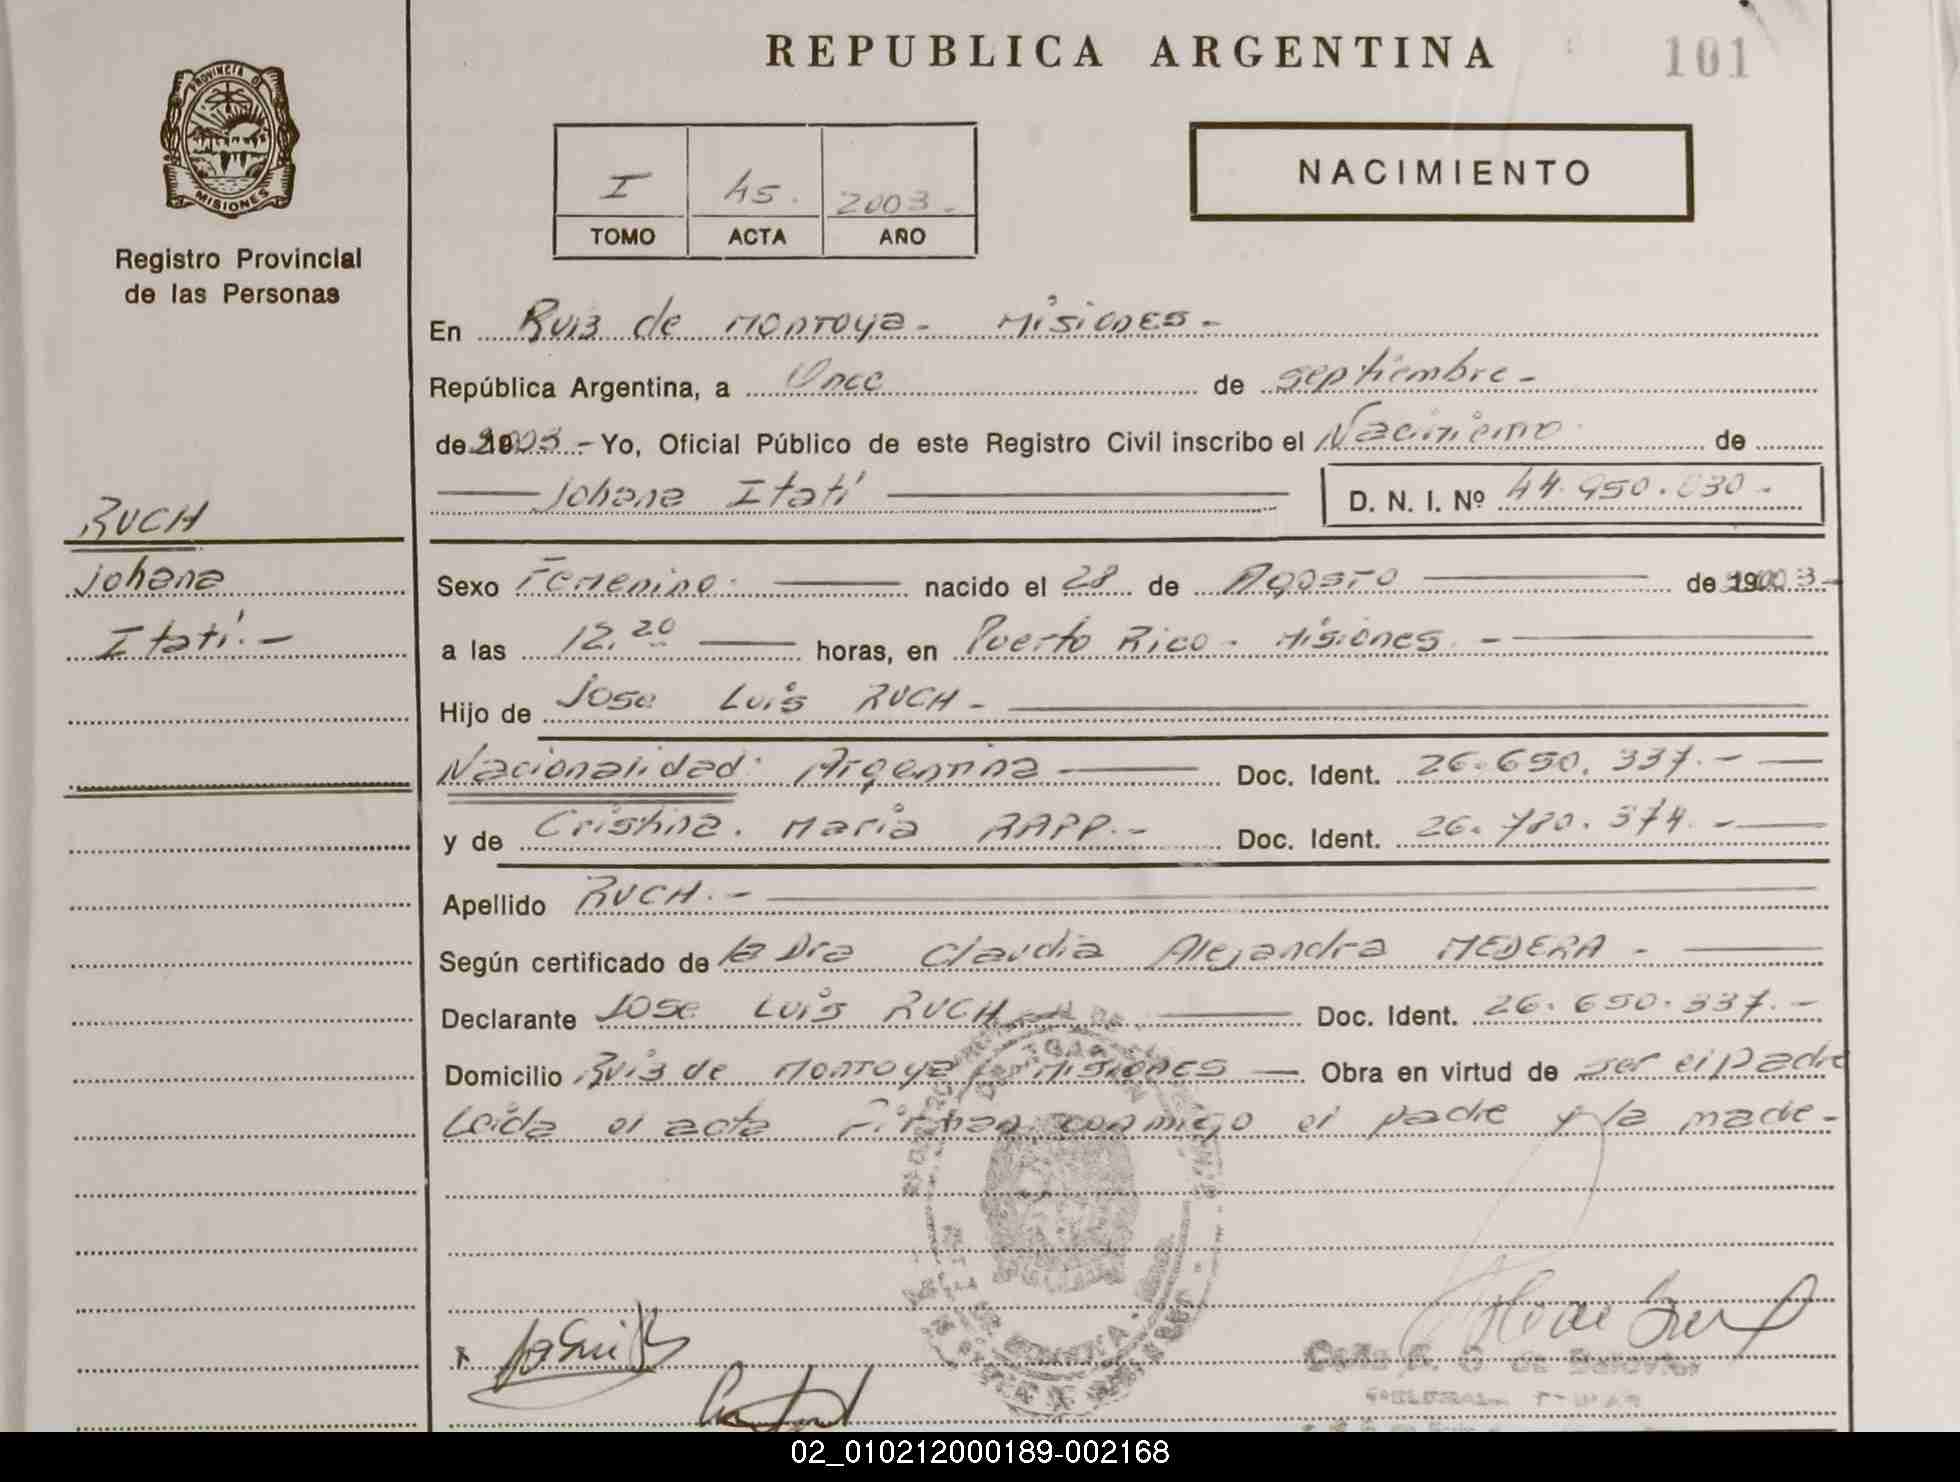 REPUBLICA ARGENTINA
101
PROVINCIA D
MISIONES
Registro Provincial
de las Personas
NACIMIENTO
I 45. 2003.-
TOMO ACTA AÑO
En Ruiz de Montoya - Misiones -
República Argentina, a Once de septiembre -
de 2003.- Yo, Oficial Público de este Registro Civil inscribo el Nacimiento de
Johana Itatí
D. N. I. Nº 44.950.830.-
RUCH
Johana
Itatí.-
Sexo Femenino. nacido el 28 de Agosto de 2003.-
a las 12.20 horas, en Puerto Rico - Misiones.-
Hijo de Jose Luis RUCH -
Nacionalidad: Argentina Doc. Ident. 26.650.337.-
y de Cristina María RAPP.- Doc. Ident. 26.780.374.-
Apellido RUCH.-
Según certificado de la Dra Claudia Alejandra MEDERA -
Declarante Jose Luis RUCH Doc. Ident. 26.650.337.-
Domicilio Ruiz de Montoya Misiones Obra en virtud de ser el padre
Leida el acta Firman conmigo el padre y la madre-
02_010212000189-002168